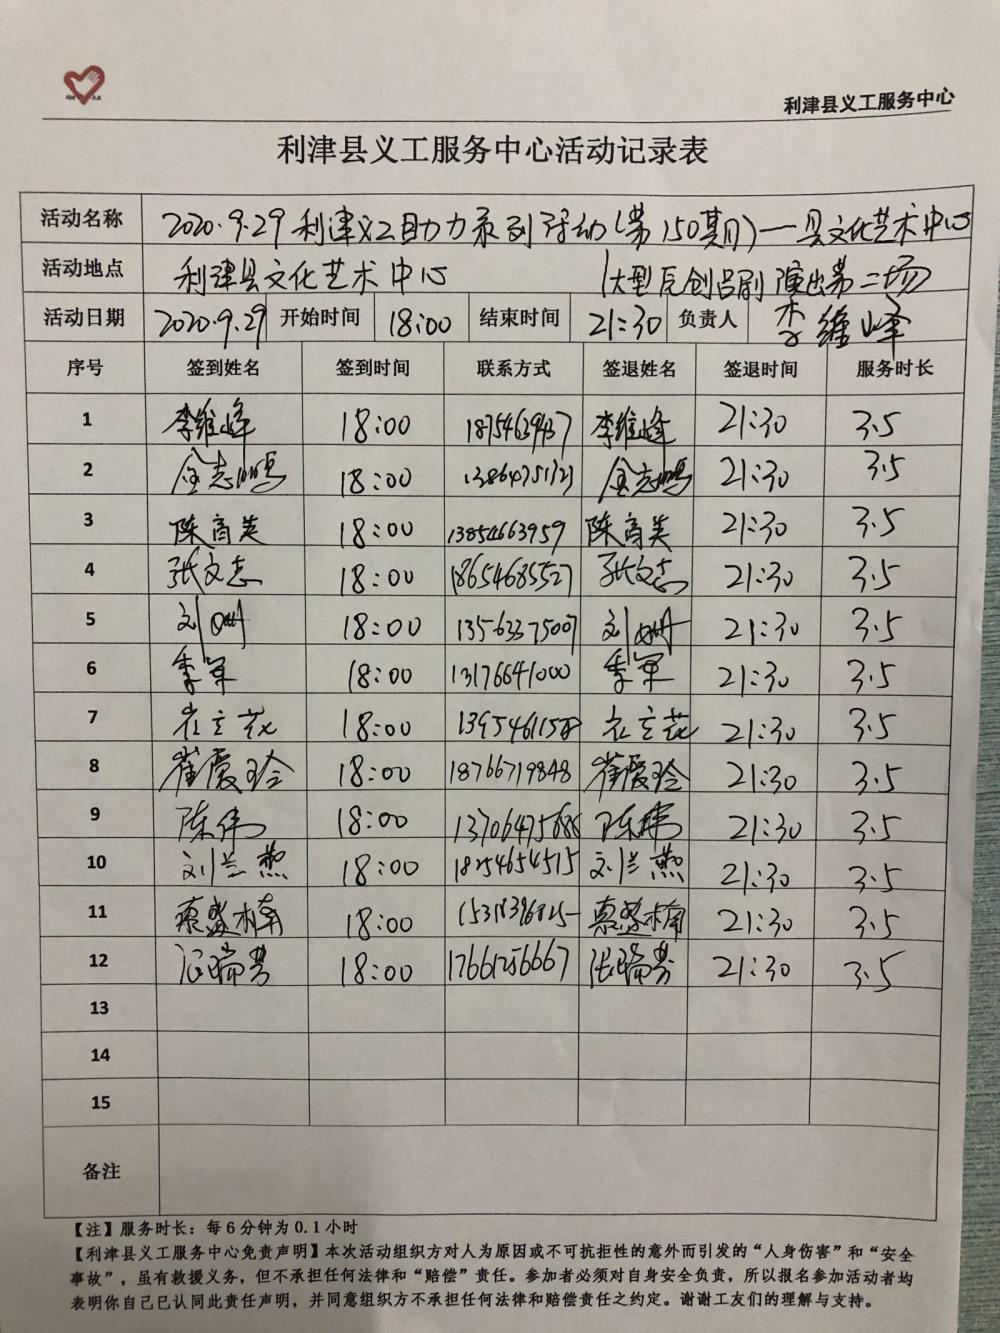 利津县义工服务中心
利津县义工服务中心活动记录表
活动名称 2020.9.29利津义工助力系列活动(第150期)一县文化艺术中心
活动地点 利津县文化艺术中心 (大型原创吕剧演出第二场)
活动日期 2020.9.29 开始时间 18:00 结束时间 21:30 负责人 李维峰
序号 签到姓名 签到时间 联系方式 签退姓名 签退时间 服务时长
1 李维峰 18:00 18754639437 李维峰 21:30 3.5
2 金志鸣 18:00 金志鸣 21:30 3.5
3 陈育英 18:00 13854663959 陈育英 21:30 3.5
4 张文志 18:00 18654685527 张文志 21:30 3.5
5 刘 18:00 13563375007 刘 21:30 3.5
6 季军 18:00 13176641000 季军 21:30 3.5
7 崔立花 18:00 崔立花 21:30 3.5
8 崔爱玲 18:00 18766719848 崔爱玲 21:30 3.5
9 陈伟 18:00 陈伟 21:30 3.5
10 刘兰燕 18:00 18254654515 刘兰燕 21:30 3.5
11 蔡楠 18:00 蔡楠 21:30 3.5
12 张瑞芳 18:00 17661256667 张瑞芳 21:30 3.5
13
14
15
备注
【注】服务时长：每6分钟为0.1小时
【利津县义工服务中心免责声明】本次活动组织方对人为原因或不可抗拒性的意外而引发的“人身伤害”和“安全
事故”，虽有救援义务，但不承担任何法律和“赔偿”责任。参加者必须对自身安全负责，所以报名参加活动者均
表明你自己已认同此责任声明，并同意组织方不承担任何法律和赔偿责任之约定。谢谢工友们的理解与支持。